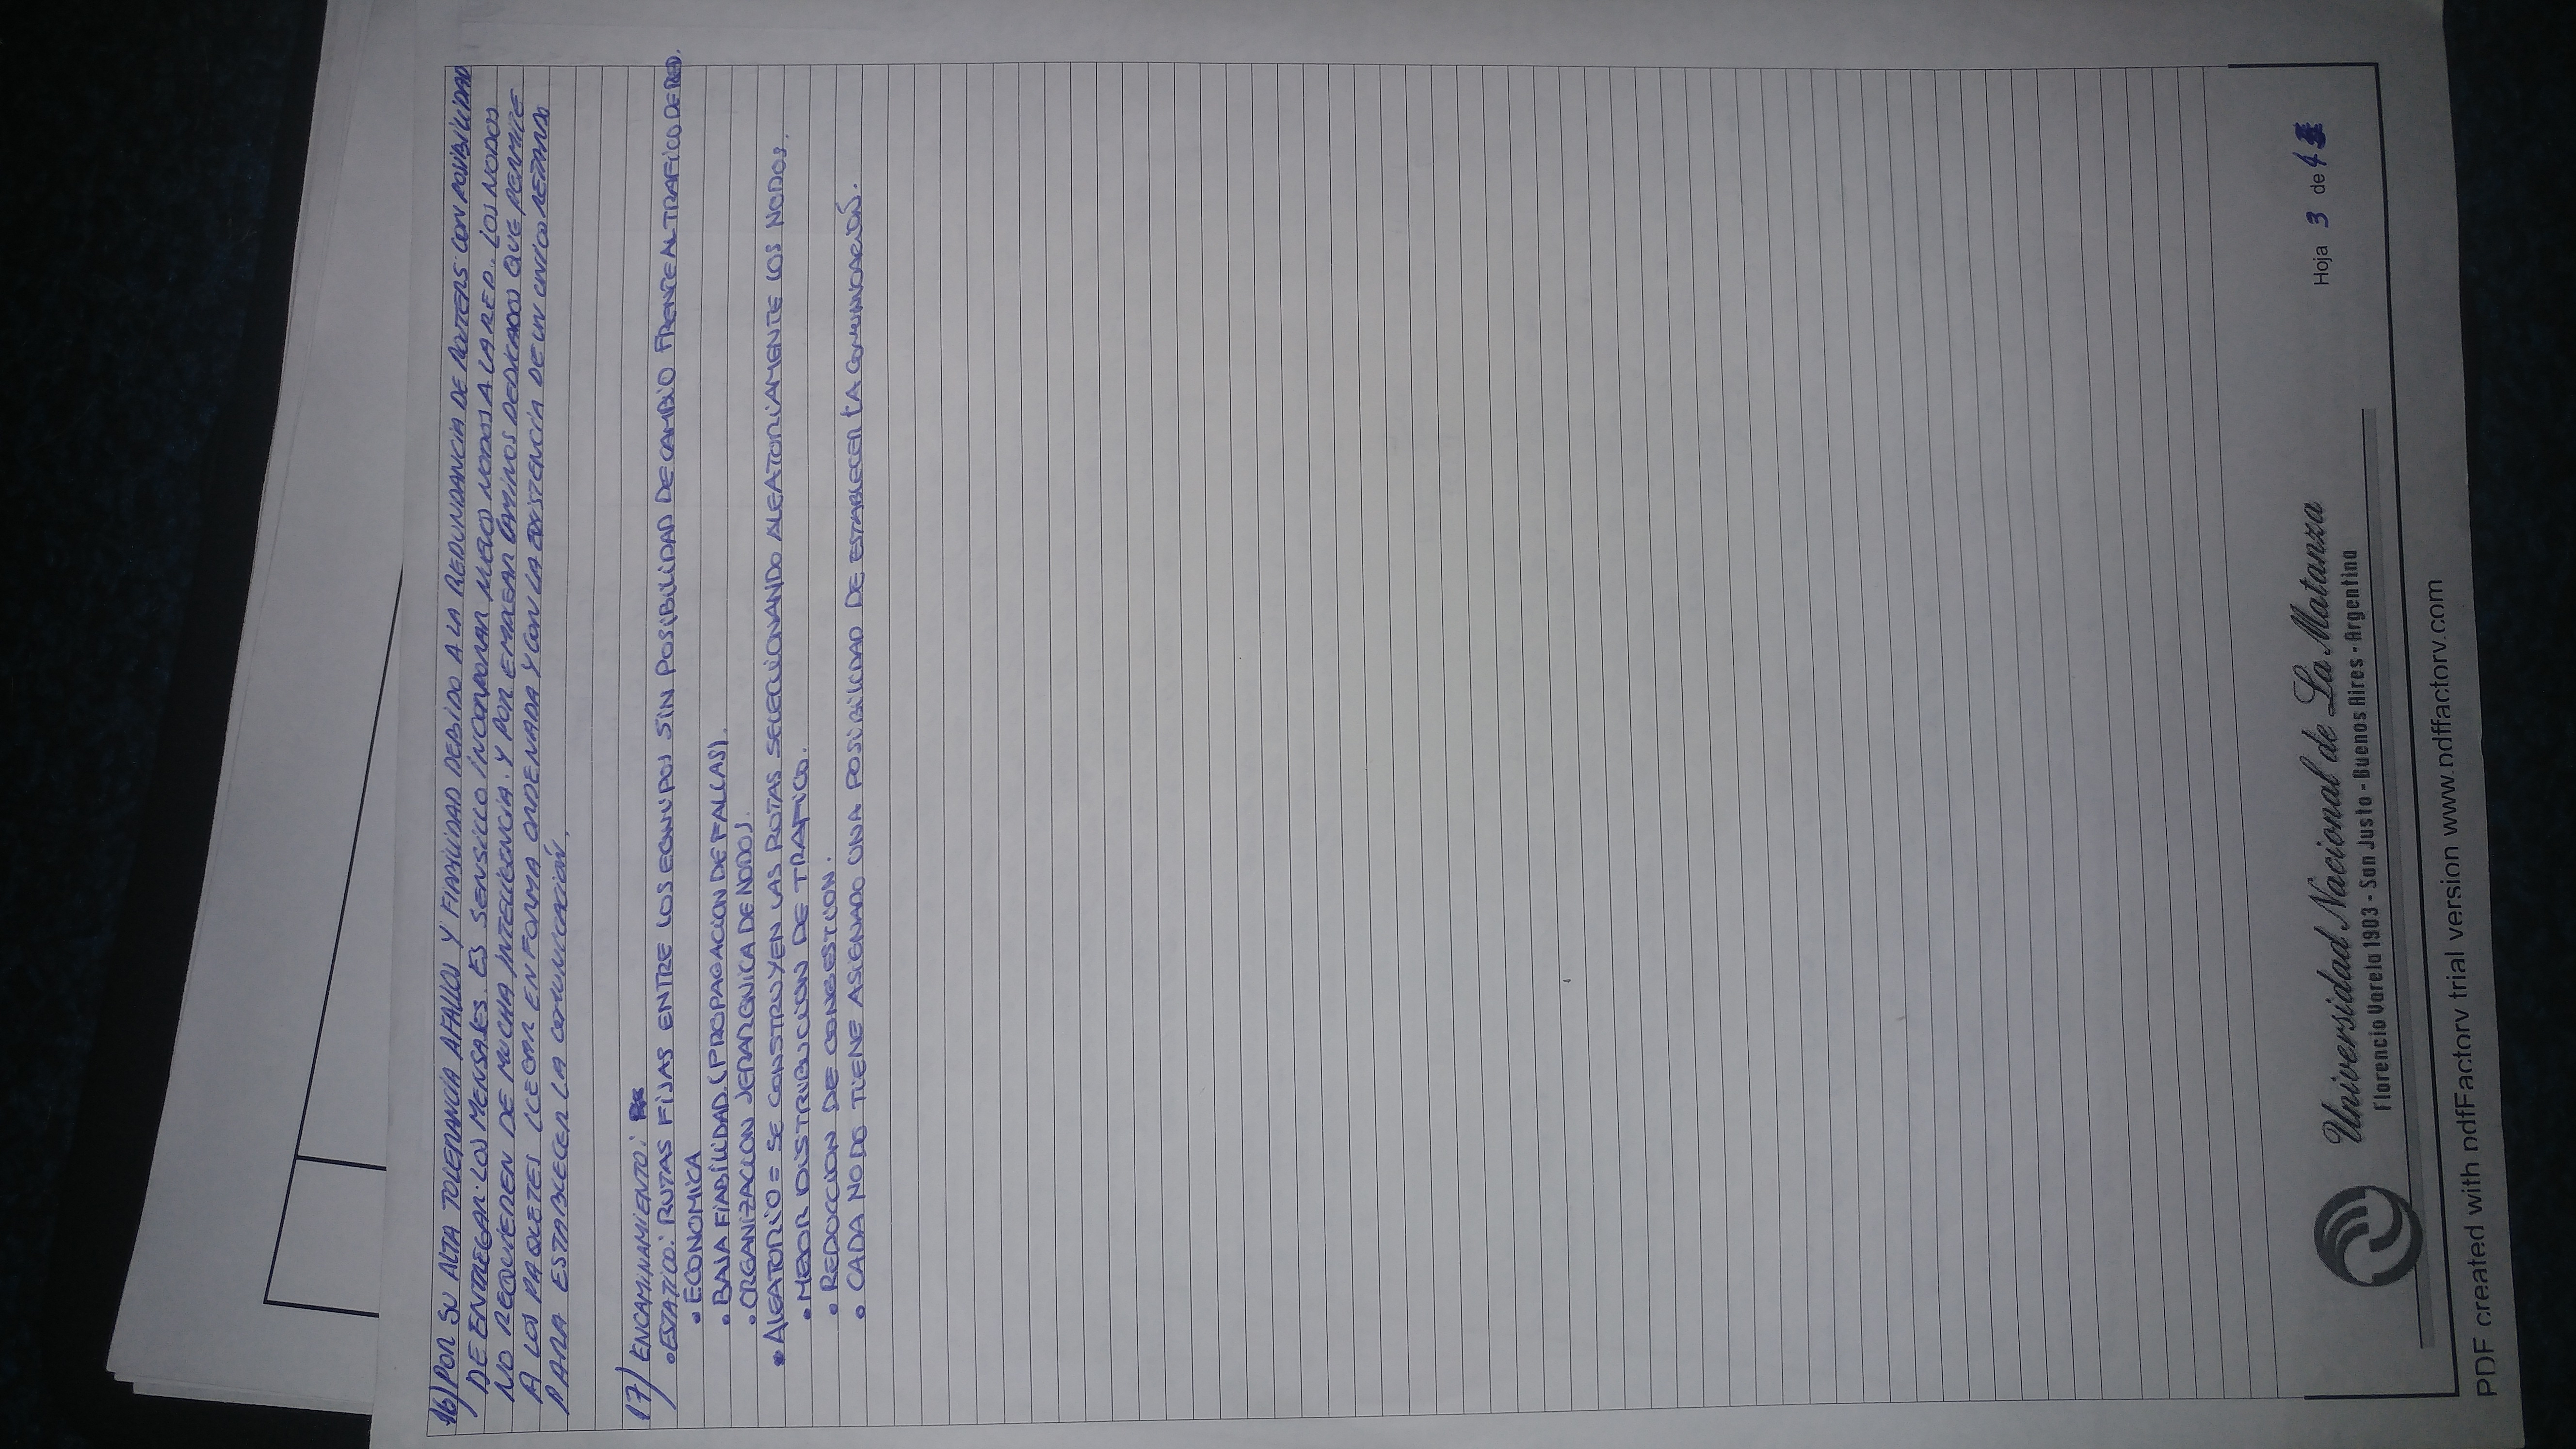 16) POR SU ALTA TOLERANCIA A FALLOS Y FIABILIDAD DEBIDO A LA REDUNDANCIA DE ROUTERS CON POSIBILIDAD
DE ENTREGAR LOS MENSAJES. ES SENSILLO INCORPORAR NUEVOS NODOS A LA RED. LOS NODOS
NO REQUIEREN DE MUCHA INTELIGENCIA. Y POR EMPLEAR CAMINOS DEDICADOS QUE PERMITE
A LOS PAQUETES LLEGAR EN FORMA ORDENADA Y CON LA EXISTENCIA DE UN UNICO RETARDO
PARA ESTABLECER LA COMUNICACIÓN.
17) ENCAMINAMIENTO:
• ESTATICO: RUTAS FIJAS ENTRE LOS EQUIPOS SIN POSIBILIDAD DE CAMBIO FRENTE AL TRAFICO DE RED.
• ECONOMICA
• BAJA FIABILIDAD. (PROPAGACION DE FALLAS).
• ORGANIZACION JERARQUICA DE NODOS.
• ALEATORIO = SE CONSTRUYEN LAS RUTAS SELECCIONANDO ALEATORIAMENTE LOS NODOS.
• MEJOR DISTRIBUCION DE TRAFICO.
• REDUCCION DE CONGESTION.
• CADA NODO TIENE ASIGNADO UNA POSIBILIDAD DE ESTABLECER LA COMUNICACIÓN.
Universidad Nacional de La Matanza
Florencio Varela 1903 - San Justo - Buenos Aires - Argentina
Hoja 3 de 4
PDF created with pdfFactory trial version www.pdffactory.com